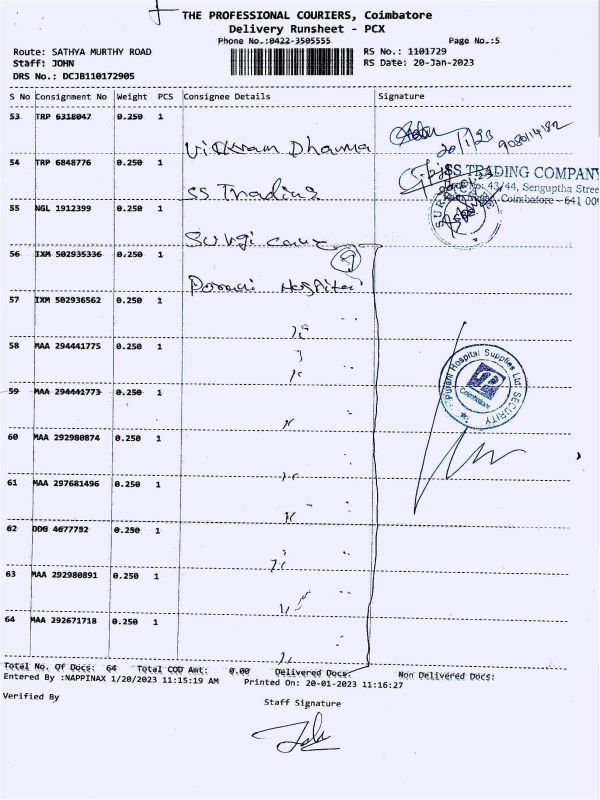 THE PROFESSIONAL COURIERS, Coimbatore
Delivery Runsheet - PCX
Phone No.:0422-3505555
Page No.:5
Route: SATHYA MURTHY ROAD
RS No.: 1101729
Staff: JOHN
RS Date: 20-Jan-2023
DRS No.: DCJB110172905
S No Consignment No Weight PCS Consignee Details Signature
53 TRP 6318047 0.250 1
Vikram Dharma
20/1/23
54 TRP 6848776 0.250 1
SS Trading
SS TRADING COMPANY
43/44, Senguptha Stree
Coimbatore - 641 009
55 NGL 1912399 0.250 1
56 IXM 502935336 0.250 1
Hospital
57 IXM 502936562 0.250 1
58 MAA 294441775 0.250 1
Purani Hospital Supplies Ltd SECURITY
Coimbatore
59 MAA 294441773 0.250 1
60 MAA 292980874 0.250 1
61 MAA 297681496 0.250 1
62 DDG 4677752 0.250 1
63 MAA 292980891 0.250 1
64 MAA 292671718 0.250 1
Total No. Of Docs: 64 Total COD Amt: 0.00 Delivered Docs: Non Delivered Docs:
Entered By :NAPPINAX 1/20/2023 11:15:19 AM Printed On: 20-01-2023 11:16:27
Verified By
Staff Signature